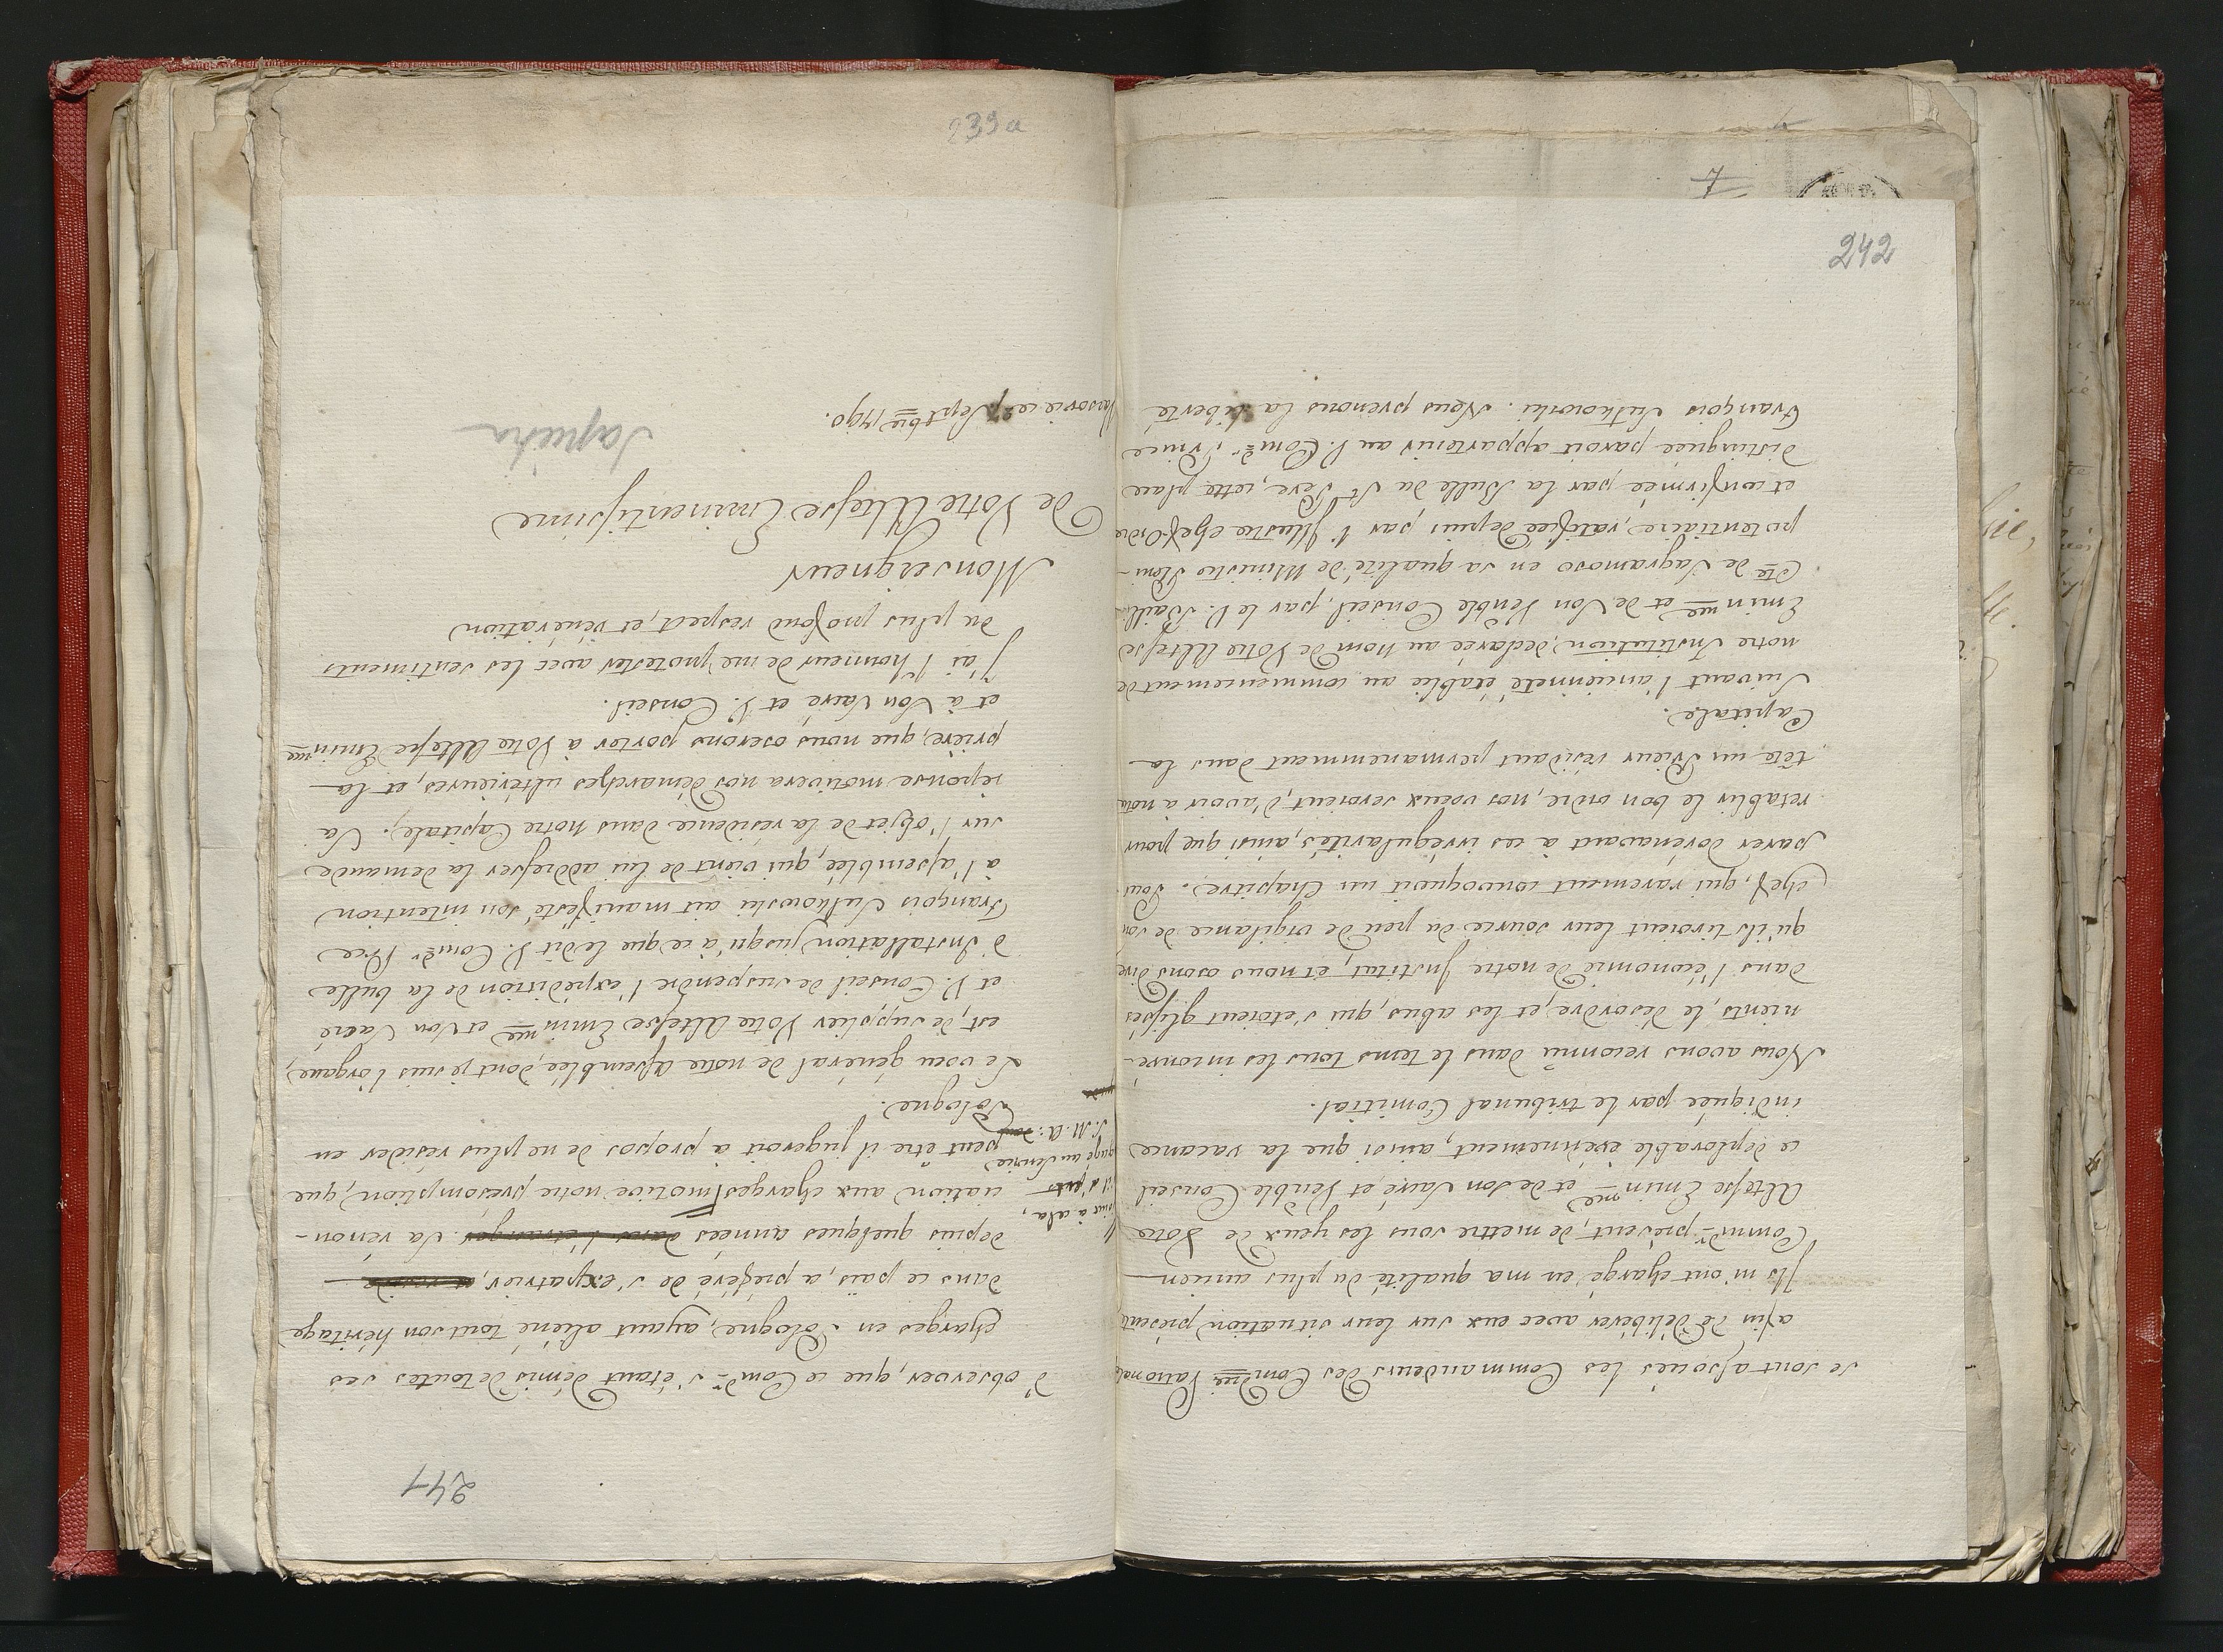 242
se sont associés les Commandeurs des Comdries Patronal
afin de délibérer avec eux sur leur situation présente
Ils m'ont chargé en ma qualité du plus ancien
Commdr présent, de mettre sous les yeux de Votre
Altesse Eminme et de Son Sacré, et Venble Conseil
ce déplorable événement, ainsi que la vacance
indiquée par le tribunal Comitial.
Nous avons reconnu dans le tems tous les inconvé-
nients, le désordre, et les abus, qui s'etoient glissés
dans l'économie de notre Institut, et nous osons dire
qu'ils tiroient leur source du peu de vigilance de son
Chef, qui rarement convoquoit un Chapitre. Pour
parer dorénavant à ces irrégularités, ainsi que pour
retablir le bon ordre, nos voeux seroient, d'avoir à notre
tête un Prieur résidant permanemment dans la
Capitale.
Suivant l'ancienneté établie au commencement de
notre Institution, declarée au nom de Votre Altesse
Eminme et de Son Venble Conseil, par le V. Bailli
Cte de Sagramoso en sa qualité de Ministre Pleni-
potentiaire, ratifiée depuis par l'Illustre chef-Ordre
et confirmée par la Bulle du St Père, cette place
distinguée paroit appartenir au V. Comdr Prince
François Sulkowski. Nous prenons la liberté
241
d'observer, que ce Comdr s'étant démis de toutes ses
charges en Pologne, ayant aliéné tout son héritage
dans ce païs, a préféré de s'expatrier, et reside
depuis quelques années dans l'étranger. Sa rénon-
ciation aux charges motive notre présomption, que
peut être il jugeroit à propos de ne plus résider en
Pologne.
à cela,
au Service
S. M. A:
Le voeu général de notre Assemblée, dont je suis l'organe,
est, de supplier Votre Altesse Eminme et Son Sacré
et V. Conseil de suspendre l'expédition de la bulle
d'Installation jusqu'à ce que le dit V. Comdr Pce
François Sulkowski ait manifesté son intention
à l'assemblée, qui vient de lui addresser la demande
sur l'objet de la résidence dans notre Capitale. Sa
réponse motivera nos démarches ultérieures, et la
prière, que nous oserons porter à Votre Altesse Eminme
et à Son Sacré et V. Conseil.
J'ai l'honneur de me protester avec les sentiments
du plus profond respect, et vénération
Monseigneur
De Votre Altesse Eminentissime
Varsovie ce 27 Septbre 1790.
Sapieha
239a